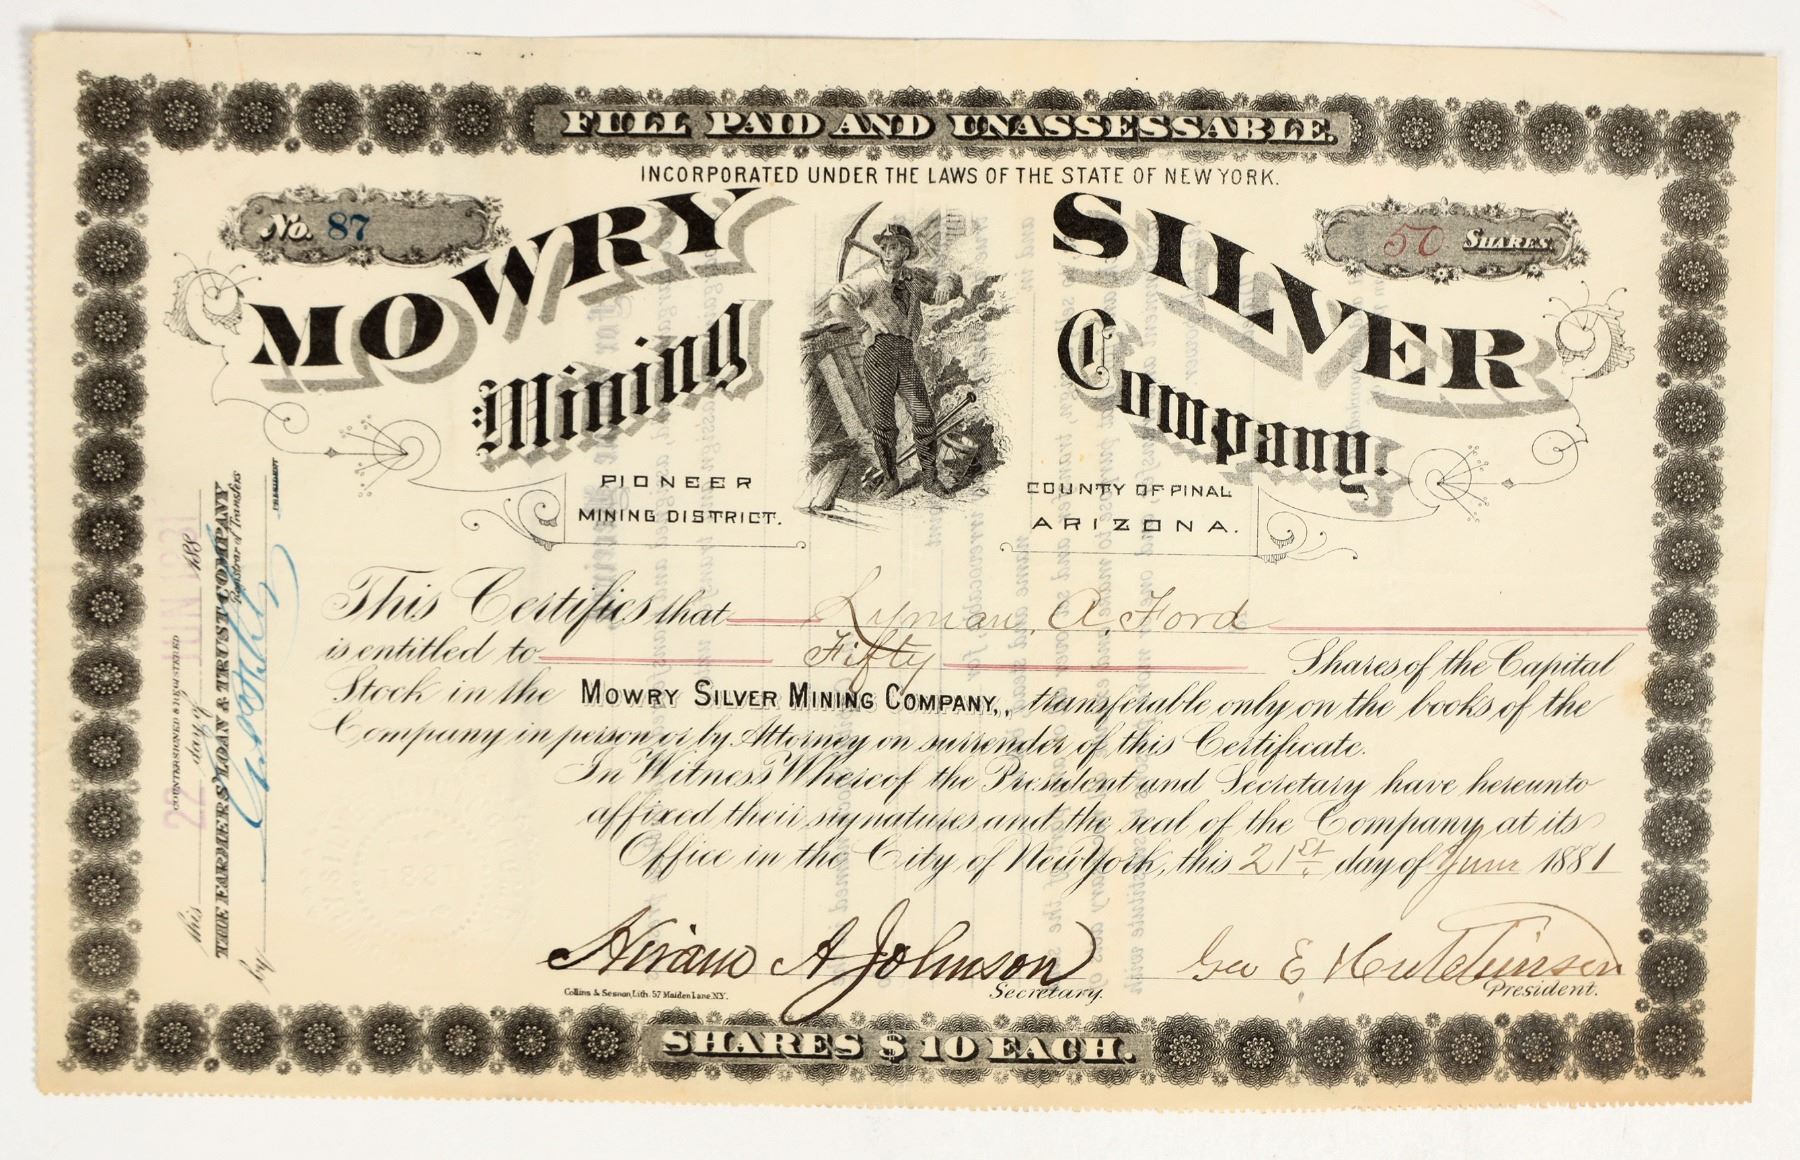 FULL PAID AND UNASSESSABLE.
INCORPORATED UNDER THE LAWS OF THE STATE OF NEW YORK.
No. 87
50 SHARES.
MOWRY SILVER
Mining Company.
PIONEER
MINING DISTRICT.
COUNTY OF PINAL
ARIZONA.
This Certifies that Lyman. A. Ford
is entitled to Fifty Shares of the Capital
Stock in the MOWRY SILVER MINING COMPANY,, transferable only on the books of the
Company in person or by Attorney on surrender of this Certificate.
In Witness Whereof the President and Secretary have hereunto
affixed their signatures and the seal of the Company, at its
Office in the City of New York, this 21st. day of June 1881
Hiram A Johnson
Secretary.
Geo E Hutchinson
President.
Collins & Sesnon, Lith. 57 Maiden Lane. N.Y.
SHARES $10 EACH.
COUNTERSIGNED & REGISTERED
this 22 day of JUN 1881 188
THE FARMERS' LOAN & TRUST COMPANY
Registrar of Transfers
by
PRESIDENT